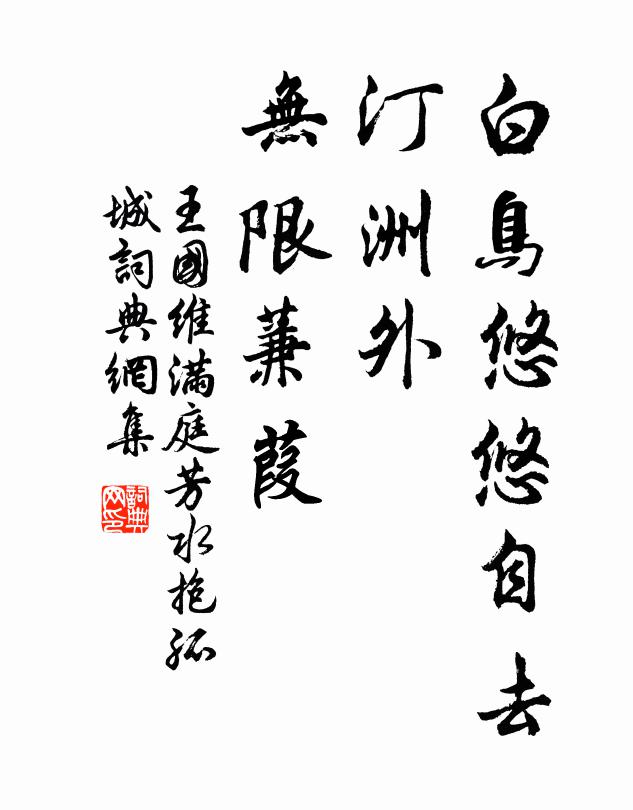 白鳥悠悠自去
汀洲外
無限蒹葭
王國維滿庭芳水抱孤
城詞典網集
詞典
网印